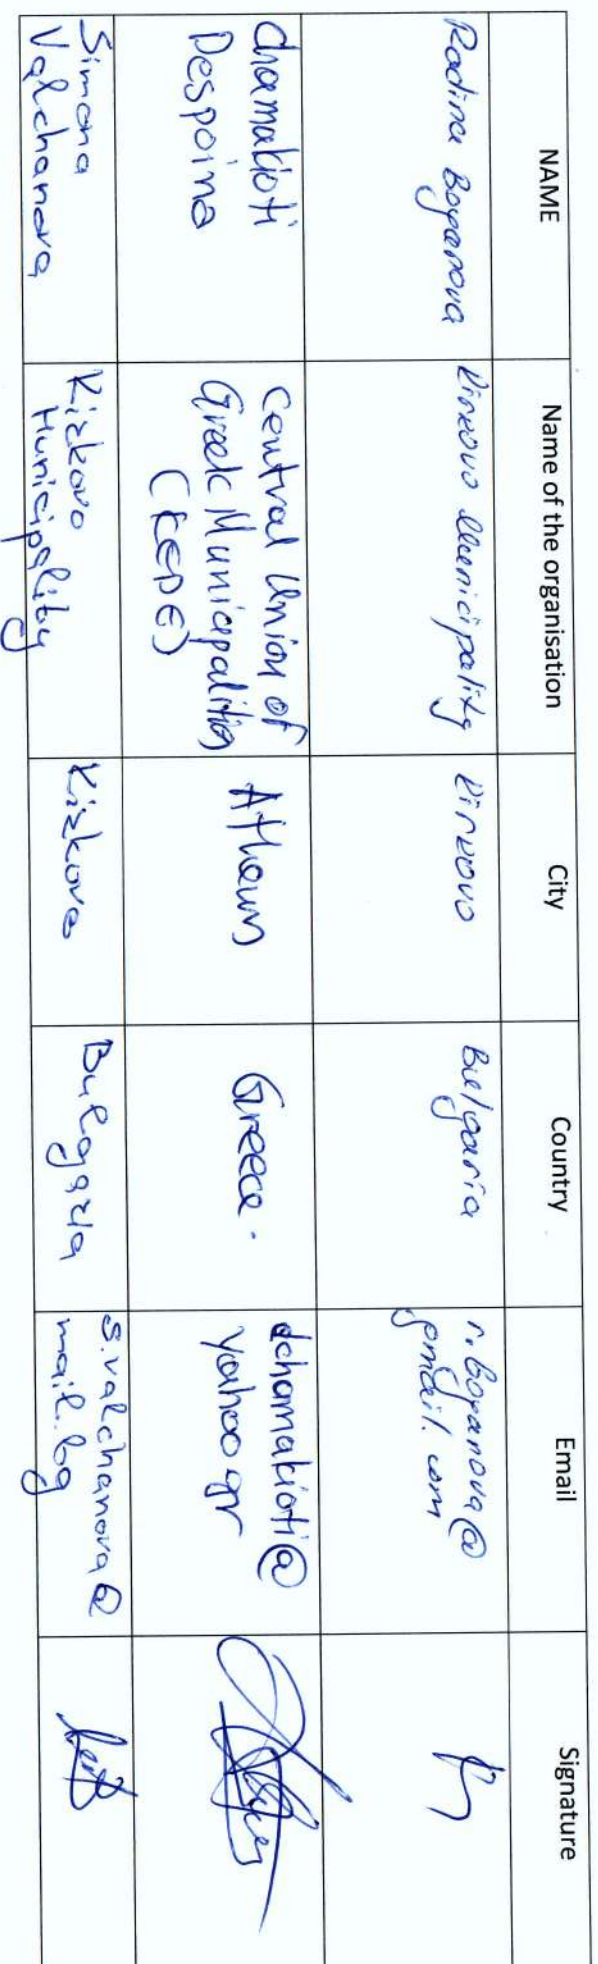 NAME
Name of the organisation
City
Country
Email
Signature
Radina Boyanova
Kirkovo Municipality
Kirkovo
Bulgaria
r.boyanova@
gmail.com
Chamakioti
Despoina
Central Union of
Greek Municipalities
(KEDE)
Athens
Greece.
dchamakioti@
yahoo.gr
Simona
Valchanova
Kirkovo
Municipality
Kirkovo
Bulgaria
s.valchanova@
mail.bg